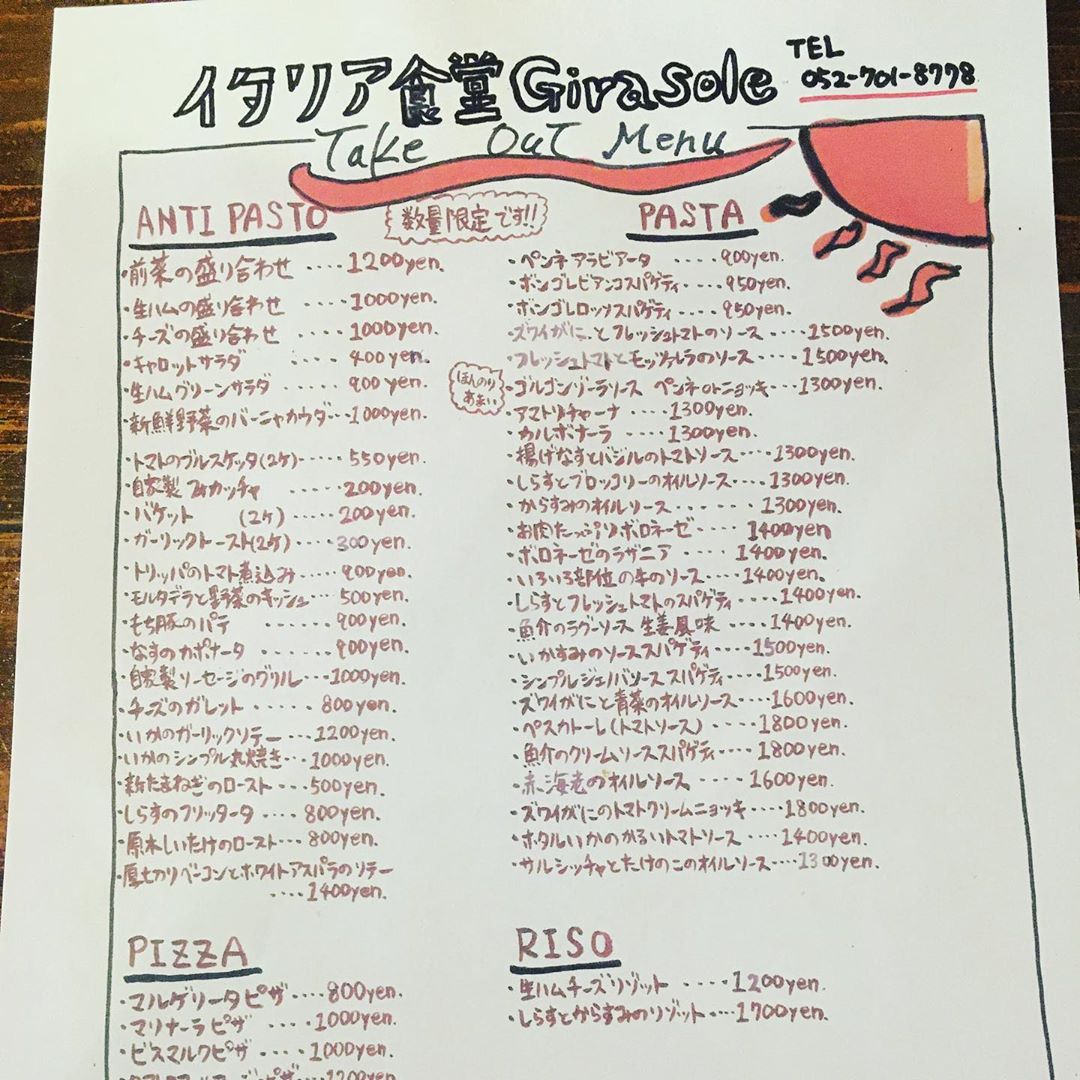 イタリア食堂Girasole
TEL
052-701-8778
Take Out Menu
ANTI PASTO
数量限定です!!
・前菜の盛り合わせ ････1200yen.
・生ハムの盛り合わせ ････1000yen.
・チーズの盛り合わせ ････1000yen.
・キャロットサラダ ････400yen.
・生ハムグリーンサラダ ････900yen.
・新鮮野菜のバーニャカウダ･･･1000yen.
・トマトのブルスケッタ(2ケ)････550yen.
・自家製フォカッチャ ･････200yen.
・バケット (2ケ)････200yen.
・ガーリックトースト(2ケ)････300yen.
・トリッパのトマト煮込み････900yen.
・モルタデラと野菜のキッシュ････500yen.
・もち豚のパテ ･･････900yen.
・なすのカポナータ ･･････900yen.
・自家製ソーセージのグリル･･･1000yen.
・チーズのガレット･････800yen.
・いかのガーリックソテー････1200yen.
・いかのシンプル丸焼き･･･1000yen.
・新たまねぎのロースト････500yen.
・しらすのフリッタータ････800yen.
・原木しいたけのロースト････800yen.
・厚切りベーコンとホワイトアスパラのソテー
････1400yen.
PASTA
・ペンネアラビアータ ････900yen.
・ボンゴレビアンコスパゲティ････950yen.
・ボンゴレロッソスパゲティ････950yen.
・ズワイがにとフレッシュトマトのソース････1500yen.
・フレッシュトマトとモッツァレラのソース････1500yen.
ほんのり
あまい
・ゴルゴンゾーラソース ペンネorニョッキ････1300yen.
・アマトリチャーナ ････1300yen.
・カルボナーラ ････1300yen.
・揚げなすとバジルのトマトソース････1300yen.
・しらすとブロッコリーのオイルソース････1300yen.
・からすみのオイルソース･･････1300yen.
・お肉たっぷりボロネーゼ････1400yen
・ボロネーゼのラザニア ････1400yen.
・いろいろ部位の牛のソース････1400yen.
・しらすとフレッシュトマトのスパゲティ････1400yen.
・魚介のラグーソース 生姜風味････1400yen.
・いかすみのソーススパゲティ････1500yen.
・シンプルジェノバソーススパゲティ････1500yen.
・ズワイがにと青菜のオイルソース････1600yen.
・ペスカトーレ(トマトソース)････1800yen.
・魚介のクリームソーススパゲティ････1800yen.
・赤海老のオイルソース･････1600yen.
・ズワイがにのトマトクリームニョッキ････1800yen.
・ホタルいかのかるいトマトソース････1400yen.
・サルシッチャとたけのこのオイルソース････1300yen.
PIZZA
・マルゲリータピザ････800yen.
・マリナーラピザ ････1000yen.
・ビスマルクピザ････1000yen.
1200yen
RISO
・生ハムチーズリゾット ････1200yen.
・しらすとからすみのリゾット････1700yen.